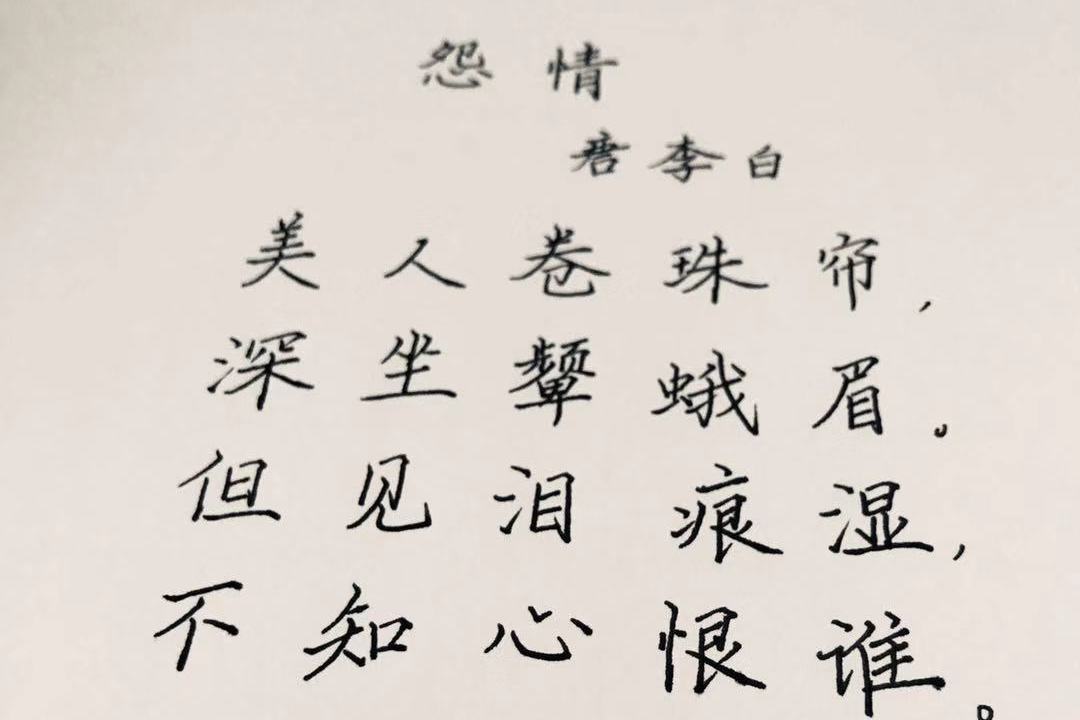 怨情
唐李白
美人卷珠帘,
深坐颦蛾眉。
但见泪痕湿,
不知心恨谁。